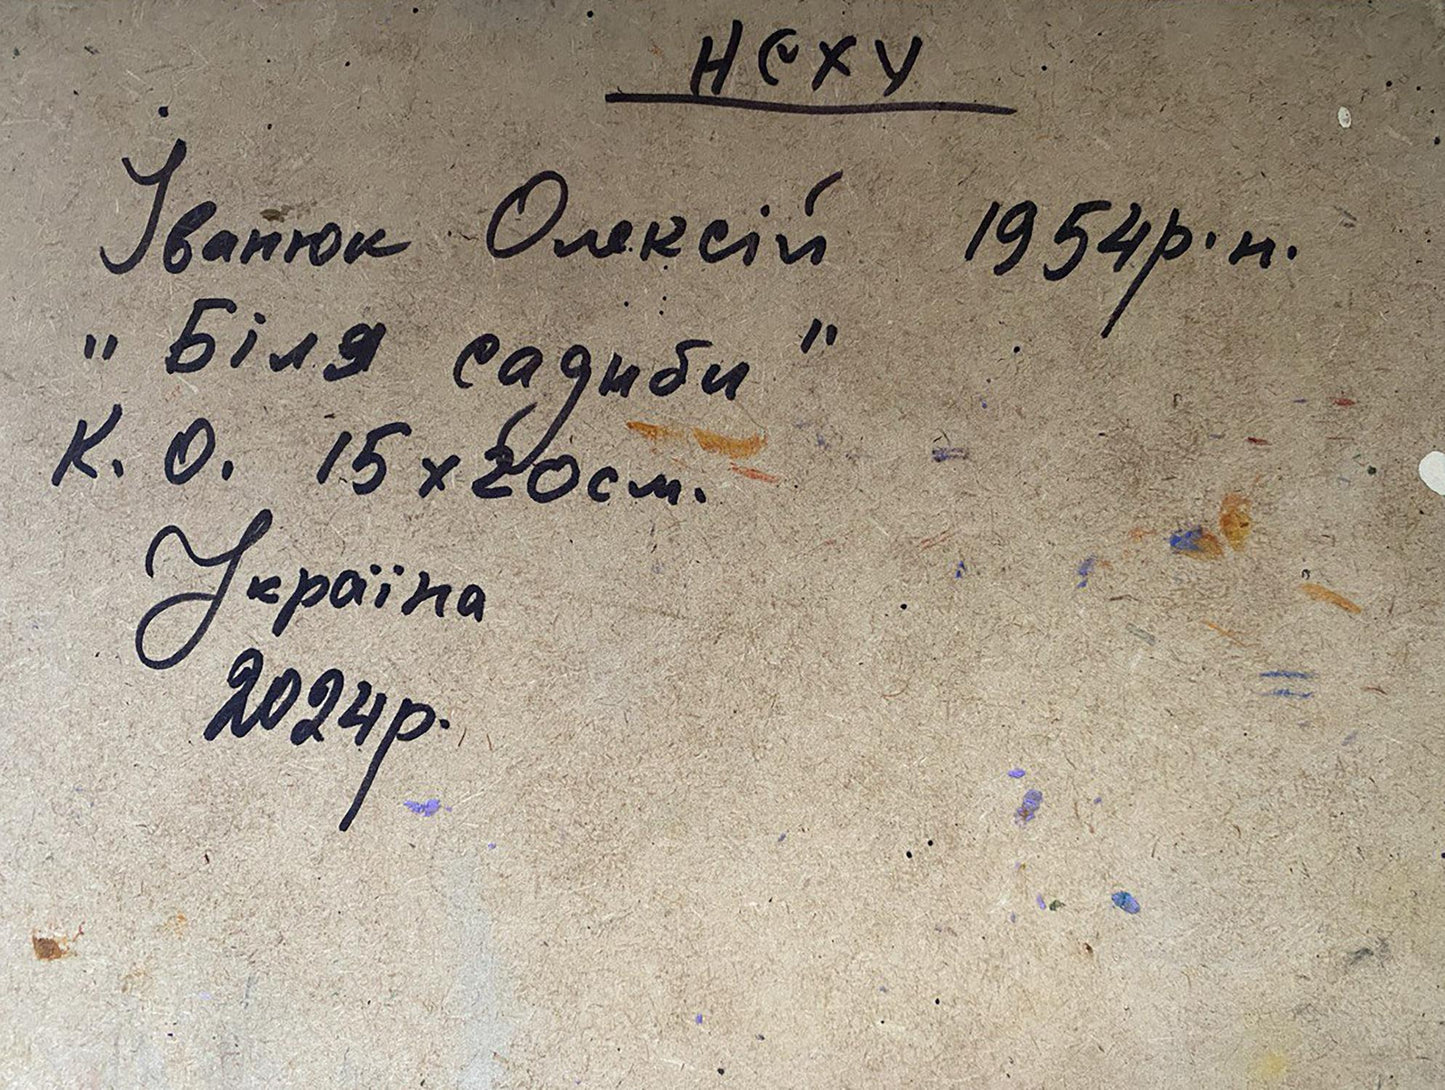 НСХУ
Іванюк Олексій 1954р.н.
"Біля садиби"
К.О. 15х20см.
Україна
2024р.